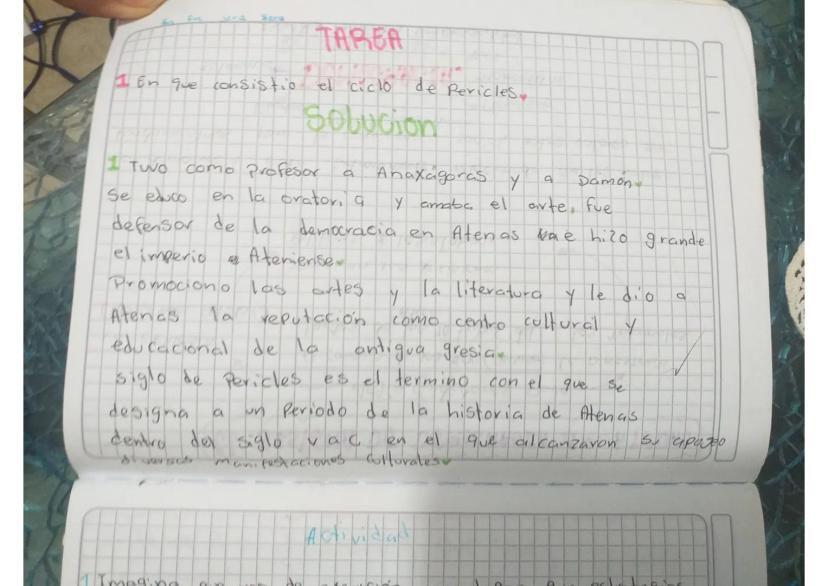 TAREA
1 En que consistio el ciclo de Pericles.
Solucion
1 Tuvo como profesor a Anaxágoras y a Damón.
Se educo en la oratoria y amaba el arte, fue
defensor de la democracia en Atenas e hizo grande
el imperio Ateniense.
Promociono las artes y la literatura y le dio a
Atenas la reputación como centro cultural y
educacional de la antigua gresia.
siglo de Pericles es el termino con el que se
designa a un Periodo de la historia de Atenas
dentro del siglo V a C, en el que alcanzaron su apajeo
diversas manifestaciones culturales
Actividad
1 Imagina